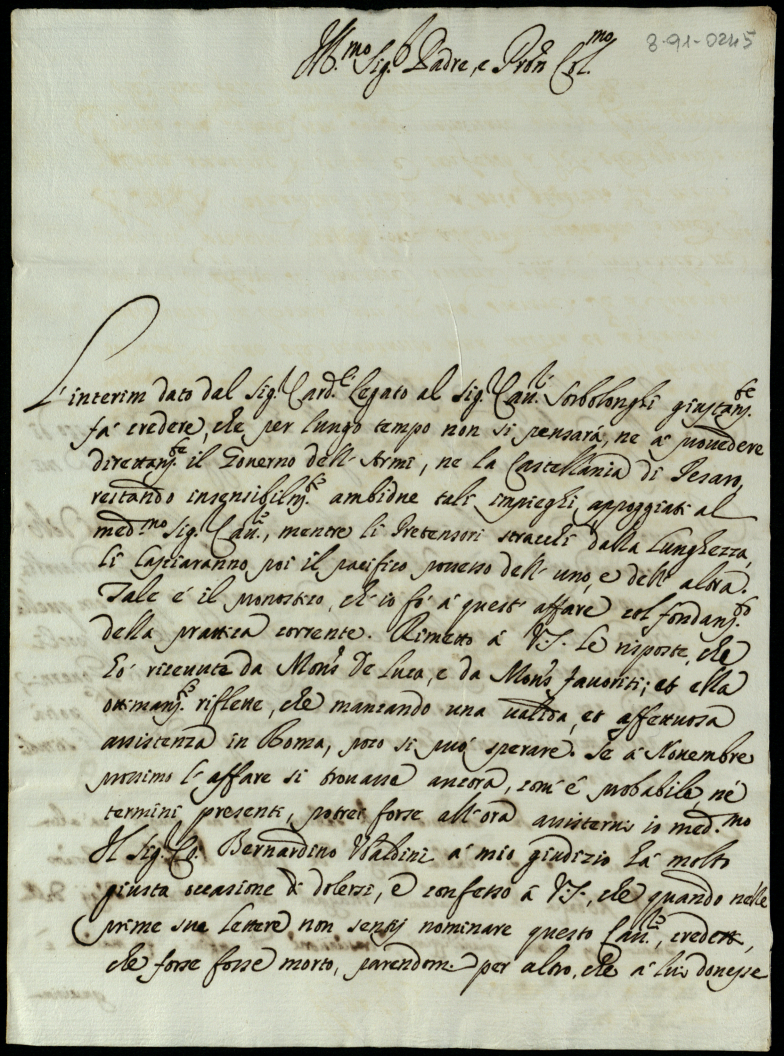 8-91-0245
Ill.mo Sig.r Padre, e Pron Col.mo
L'interim dato dal Sig.r Card.l Legato al Sig.r Cau.r Sorbolonghi giustam.te
fà credere, che per lungo tempo non si pensarà, ne à prouedere
direttam.te il Gouerno dell'Armi, ne la Castellania di Pesaro,
restando insensibilm.te ambidue tali impieghi appoggiati al
med.mo Sig.r Cau.re, mentre li Pretensori stracchi dalla lunghezza,
li lasciaranno poi il pacifico possesso dell'uno, e dell'altra.
Tale è il pronostico, ch'io fò à quest'affare col fondam.to
della prattica corrente. Rimetto à V.S. le risposte, che
hò riceuute da Mons.r De Luca, e da Mons.r Fauoriti; et ella
ottimam.te riflette, che mancando una ualida, et affettuosa
assistenza in Roma, poco si può sperare. Se à Nouembre
prossimo l'affare si trouasse ancora, com'è probabile, né
termini presenti, potrei forse all'ora assisterui io med.mo
Il Sig.r Co: Bernardino Ubaldini à mio giudizio hà molto
giusta occasione di dolersi, e confesso à V.S., che quando nelle
prime sue lettere non sentij nominare questo Cau.re, credetti,
che forse fosse morto, parendomi per altro, che à lui douesse